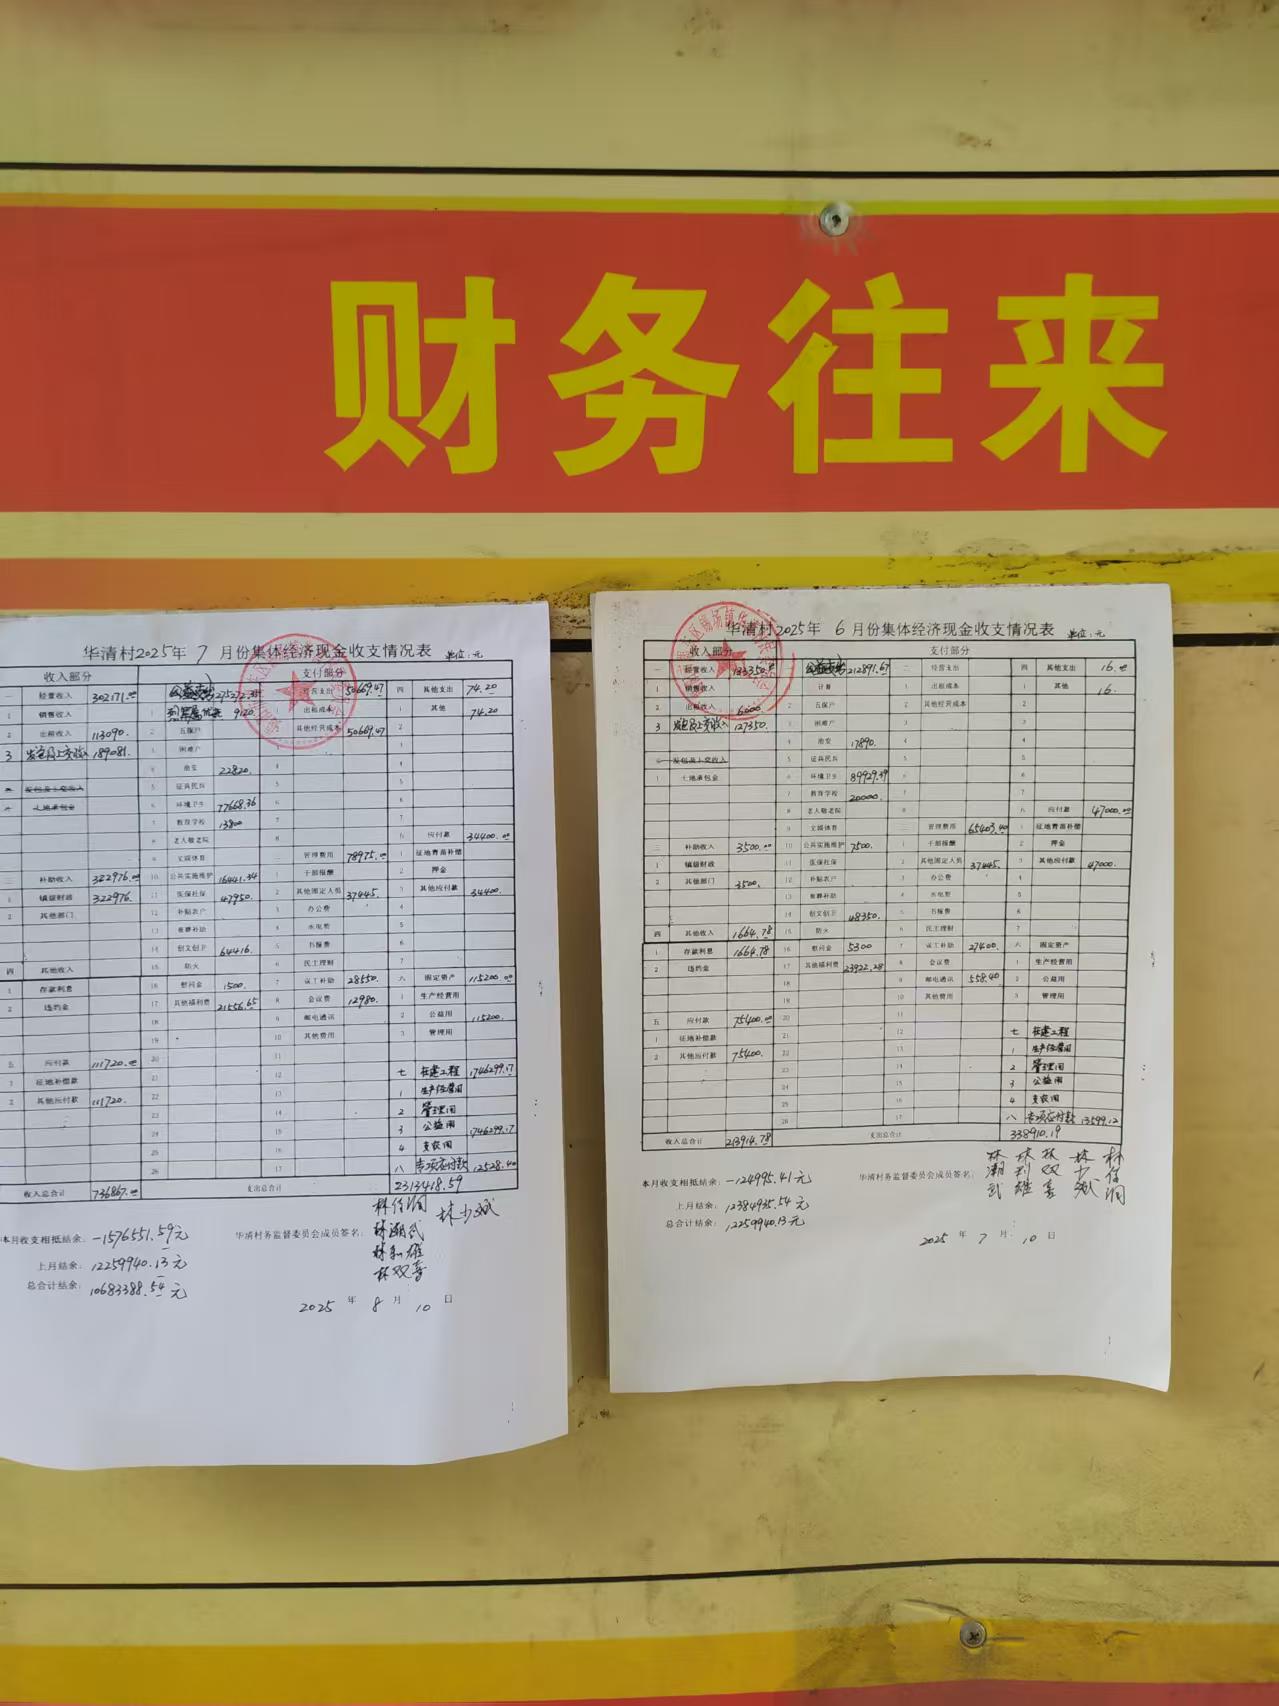 财务往来
华清村2025年 7 月份集体经济现金收支情况表 单位:元
收入部分 支付部分
一 经营收入 302171.00 公益支出 275272.35 经营支出 50669.47 四 其他支出 74.20
1 销售收入 1 9120. 1 出租成本 1 其他 74.20
2 出租收入 113090. 2 五保户 其他经营成本 50669.47 2
3 发包及上交收入 189081. 3 困难户 3
4 治安 22820. 4 4
发包及上交收入 5 征兵民兵 5 5
土地承包金 6 环境卫生 77668.36 6 6
7 教育学校 13800 7 7
8 老人敬老院 8 五 应付款 34400.00
9 文娱体育 三 管理费用 78975.00 1 征地青苗补偿
三 补助收入 322976.00 10 公共实施维护 16441.34 1 干部报酬 2 押金
1 镇级财政 322976. 11 医保社保 47950. 2 其他固定人员 37445. 3 其他应付款 34400.
2 其他部门 12 补贴农户 3 办公费 4
13 殡葬补助 4 水电费 5
14 创文创卫 64416. 5 书报费 6
四 其他收入 15 防火 6 民主理财 7
1 存款利息 16 慰问金 1500. 7 误工补助 28550. 六 固定资产 115200.00
2 违约金 17 其他福利费 21556.65 8 会议费 12980. 1 生产经营用
18 9 邮电通讯 2 公益用 115200.
19 10 其他费用 3 管理用
五 应付款 111720.00 20 11
1 征地补偿款 21 12 七 在建工程 1746299.17
2 其他应付款 111720. 22 13 1 生产经营用
23 14 2 管理用
24 15 3 公益用 1746299.17
25 16 4 支农用
26 17 八 专项应付款 12528.40
收入总合计 736867.00 支出总合计 2313418.59
本月收支相抵结余: -1576551.59元 华清村务监督委员会成员签名:
上月结余: 12259940.13元
总合计结余: 10683388.54元
林双喜
林少斌
2025 年 8 月 10 日
华清村2025年 6 月份集体经济现金收支情况表 单位:元
收入部分 支付部分
一 经营收入 133350.00 公益支出 212891.67 二 经营支出 四 其他支出 16.00
1 销售收入 1 计育 1 出租成本 1 其他 16.
2 出租收入 6000 2 五保户 2 其他经营成本 2
3 发包及上交收入 127350. 3 困难户 3 3
4 治安 17890. 4 4
发包及上交收入 5 征兵民兵 5 5
1 土地承包金 6 环境卫生 89929.39 6
7 教育学校 20000. 7 7
8 老人敬老院 8 五 应付款 47000.00
9 文娱体育 三 管理费用 65403.40 1 征地青苗补偿
三 补助收入 3500.00 10 公共实施维护 7500. 1 干部报酬 2 押金
1 镇级财政 11 医保社保 2 其他固定人员 37445. 3 其他应付款 47000.
2 其他部门 3500. 12 补贴农户 3 办公费 4
13 殡葬补助 4 水电费 5
14 创文创卫 48350. 5 书报费 6
四 其他收入 1664.78 15 防火 6 民主理财 7
1 存款利息 1664.78 16 慰问金 5300 7 误工补助 27400. 六 固定资产
2 违约金 17 其他福利费 23922.28 8 会议费 1 生产经营用
18 9 邮电通讯 558.40 2 公益用
19 10 其他费用 3 管理用
五 应付款 75400.00 20 11
1 征地补偿款 21 12 七 在建工程
2 其他应付款 75400. 22 13 1 生产经营用
23 14 2 管理用
24 15 3 公益用
25 16 4 支农用
26 17 八 专项应付款 13599.12
收入总合计 213914.78 支出总合计 338910.19
本月收支相抵结余: -124995.41元 华清村务监督委员会成员签名:
上月结余: 12384935.54元
总合计结余: 12259940.13元
林双喜
林少斌
2025 年 7 月 10 日